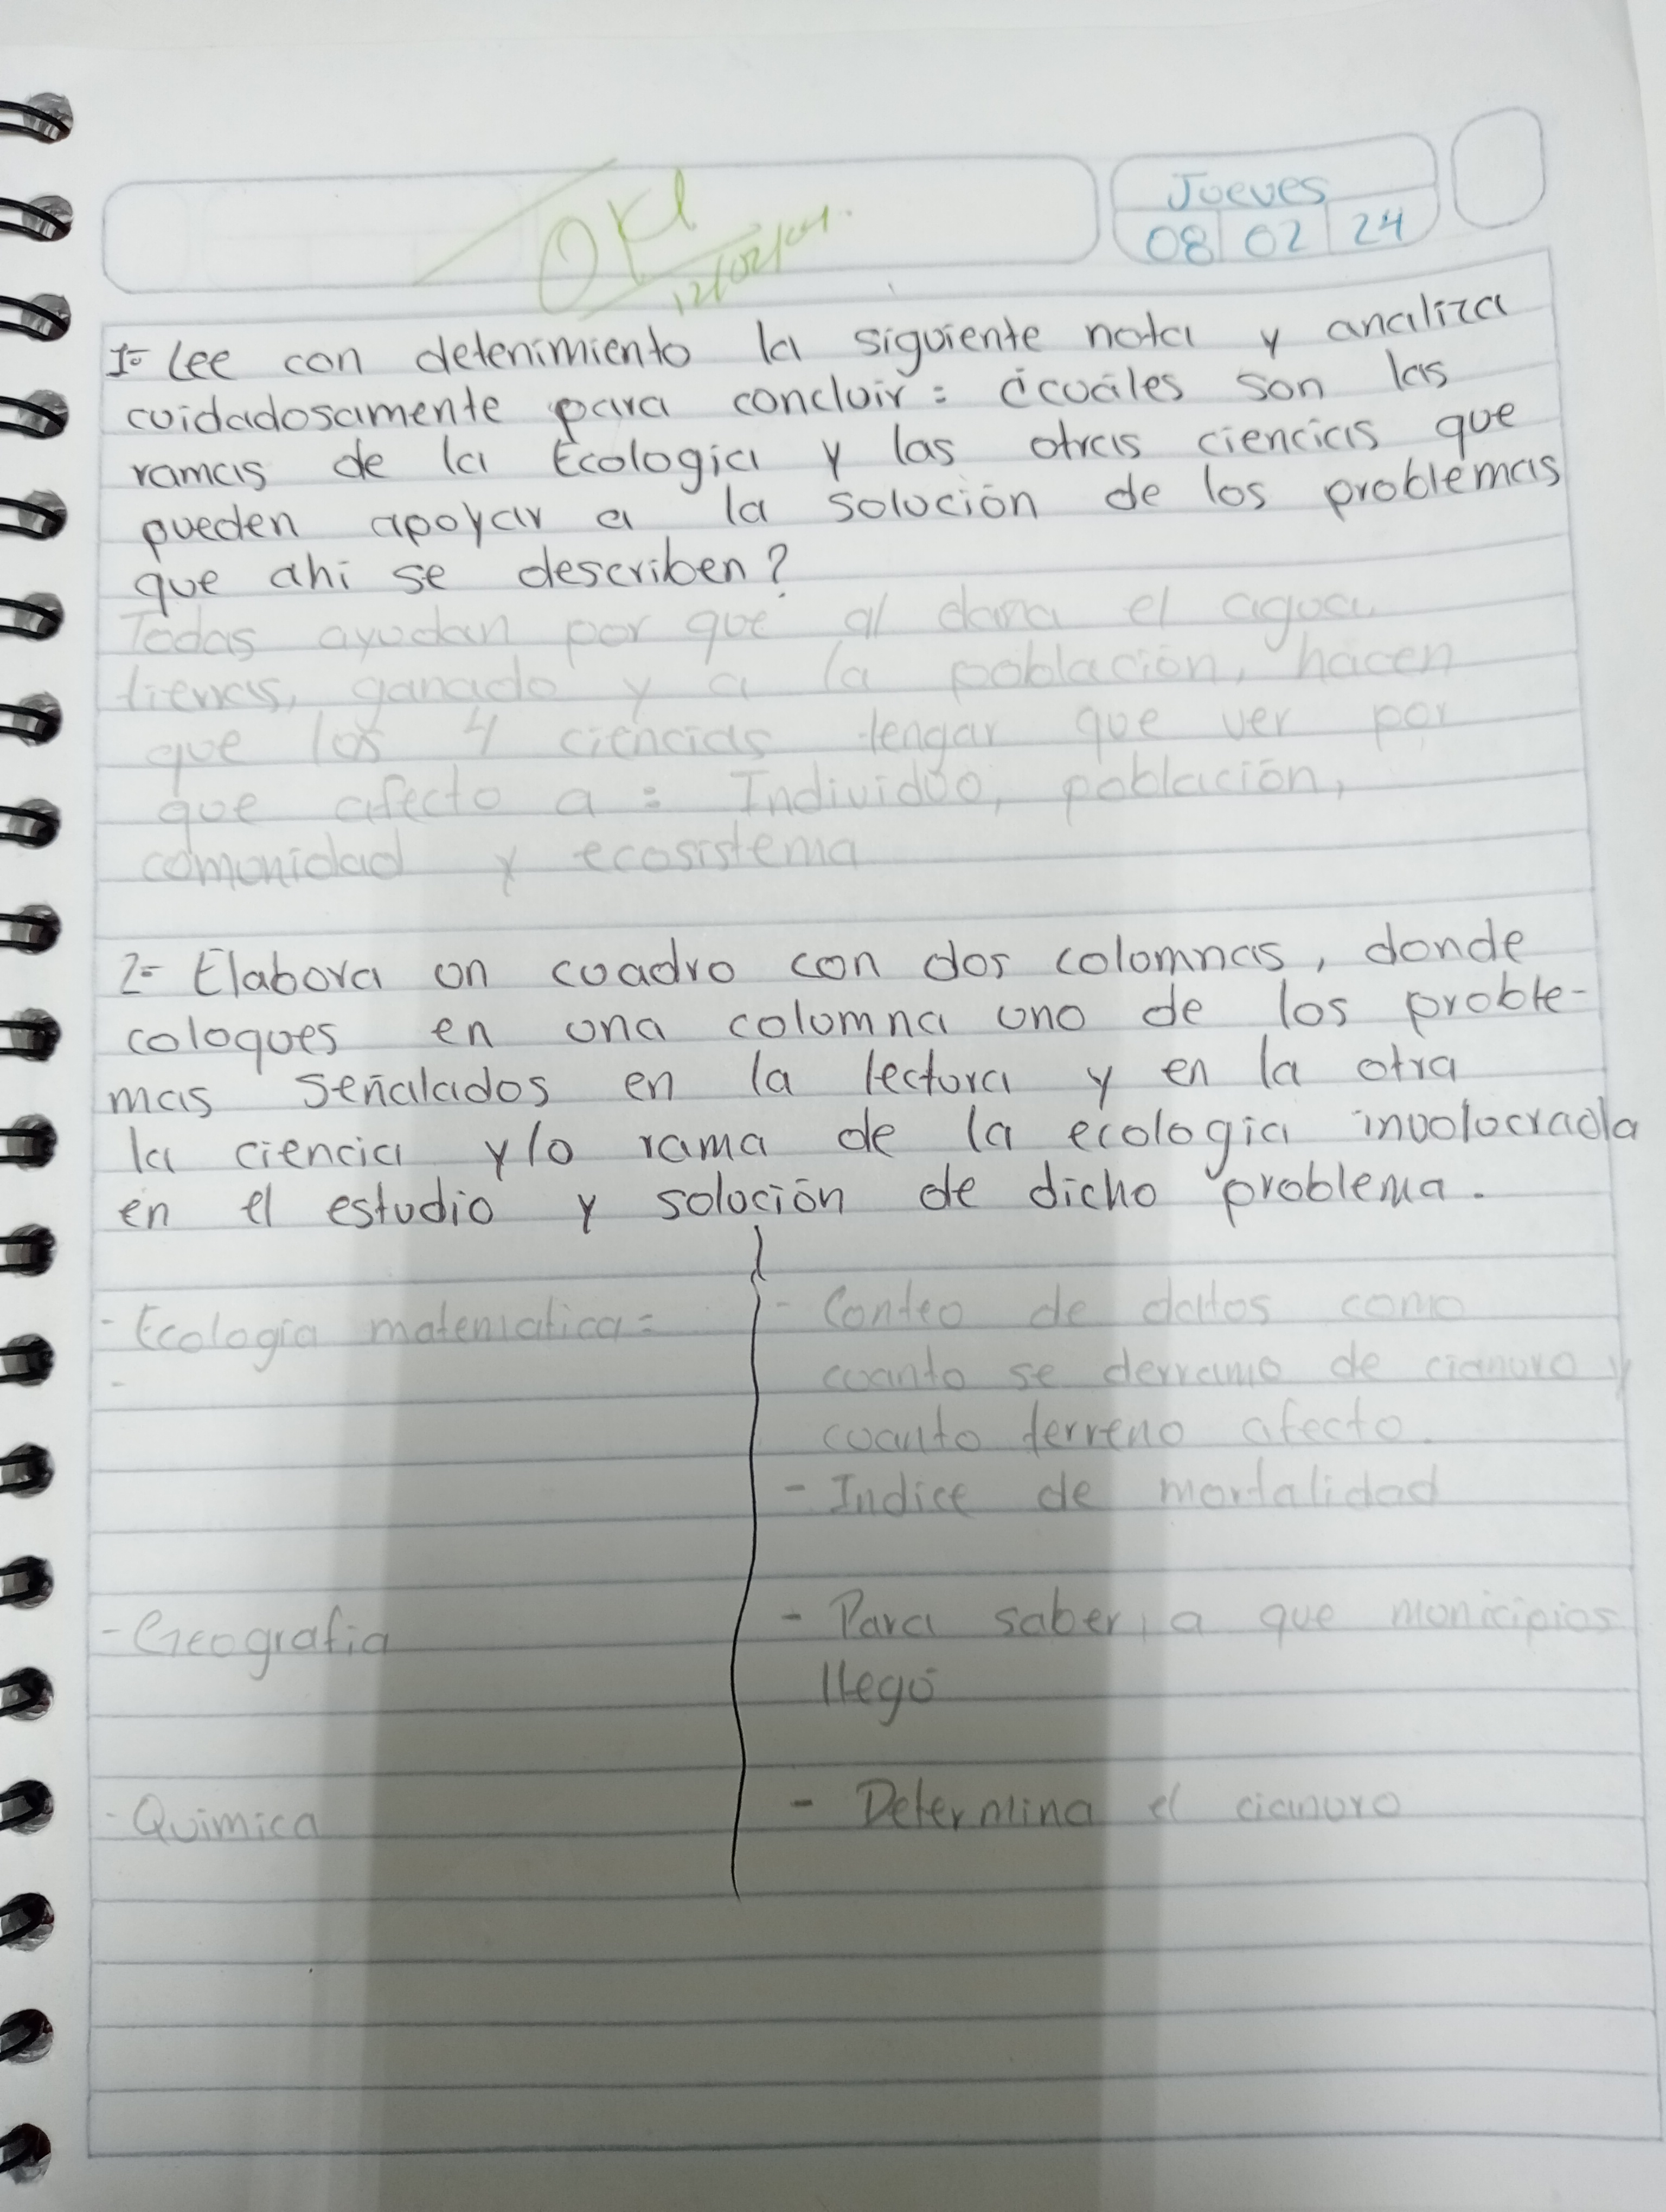 OK
12/02/24.
Jueves
08 02 24
1= Lee con detenimiento la siguiente nota y analiza
cuidadosamente para concluir: ¿cuáles son las
ramas de la Ecologia y las otras ciencias que
pueden apoyar a la solución de los problemas
que ahi se describen?
Todas ayudan por que al dana el agua
tierras, ganado y a la población, hacen
que los 4 ciencias tengan que ver por
que afecto a : Individuo, población,
comunidad y ecosistema
2= Elabora un cuadro con dos columnas, donde
coloques en una columna uno de los proble-
mas señalados en la lectura y en la otra
la ciencia y/o rama de la ecologia involucrada
en el estudio y solución de dicho problema.
- Ecologia matematica=
- Conteo de datos como
cuanto se derramo de cianuro y
cuanto terreno afecto.
- Indice de mortalidad
- Geografia
- Para saber a que municipios
llegó
- Quimica
- Determina el cianuro